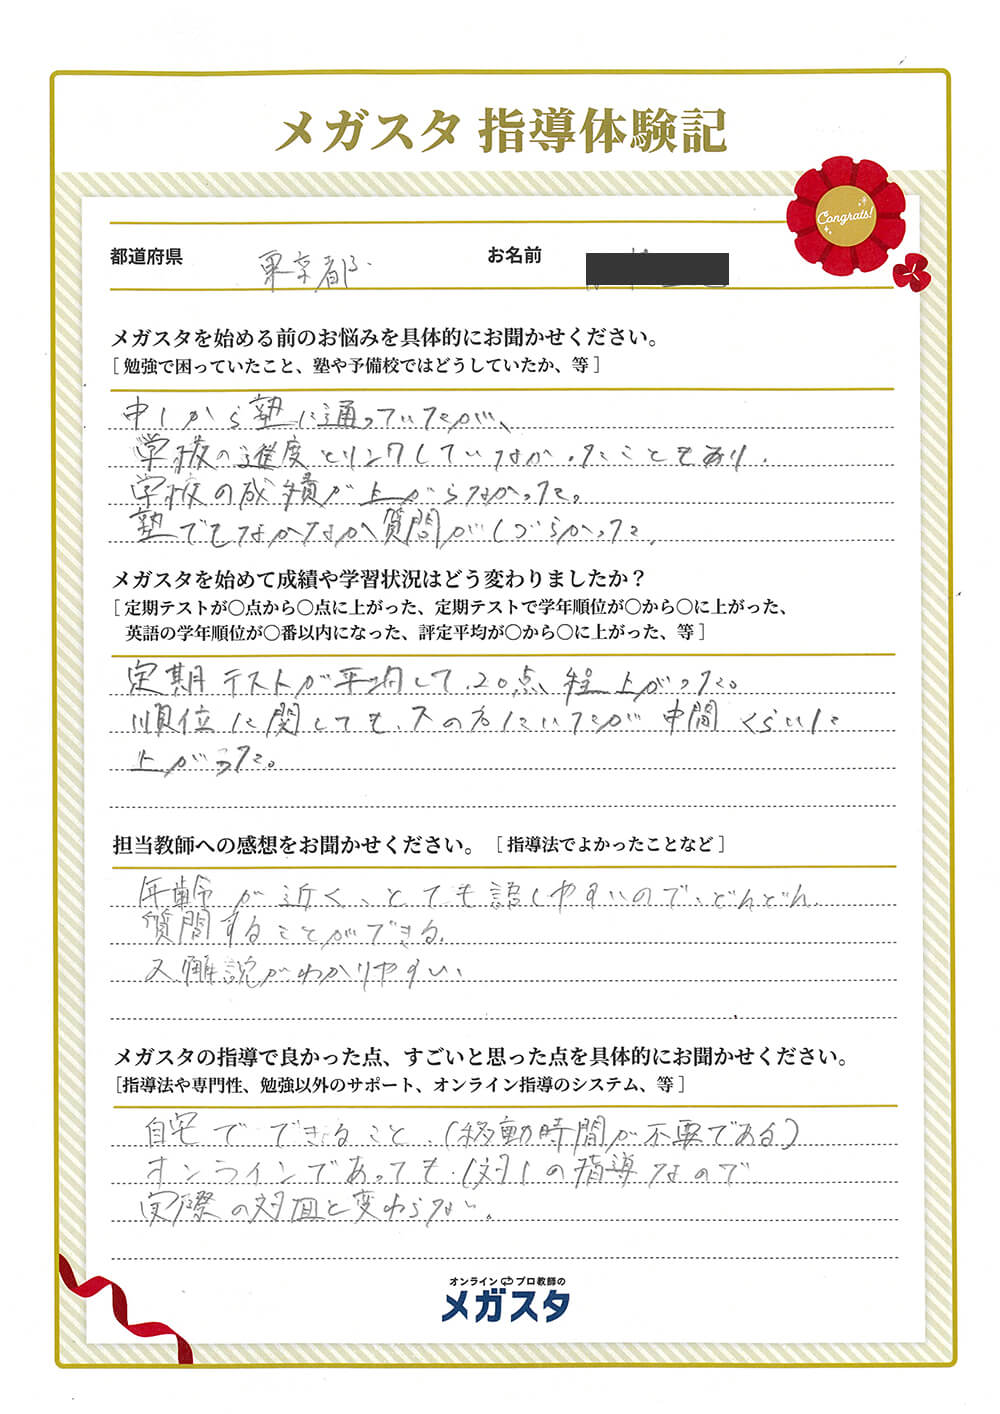 メガスタ 指導体験記
Congrats!
都道府県 東京都 お名前
メガスタを始める前のお悩みを具体的にお聞かせください。
[ 勉強で困っていたこと、塾や予備校ではどうしていたか、等 ]
中1から塾に通っていたが、
学校の進度とリンクしていなかったこともあり、
学校の成績が上がらなかった。
塾でもなかなか質問がしづらかった。
メガスタを始めて成績や学習状況はどう変わりましたか？
[ 定期テストが〇点から〇点に上がった、定期テストで学年順位が〇から〇に上がった、
英語の学年順位が〇番以内になった、評定平均が〇から〇に上がった、等 ]
定期テストが平均して、20点程上がった。
順位に関しても、下の方にいたが中間くらいに
上がった。
担当教師への感想をお聞かせください。 [ 指導法でよかったことなど ]
年齢が近く、とても話しやすいので、どんどん
質問することができる。
又、解説がわかりやすい、
メガスタの指導で良かった点、すごいと思った点を具体的にお聞かせください。
[指導法や専門性、勉強以外のサポート、オンライン指導のシステム、等 ]
自宅でできること、(移動時間が不要である)
オンラインであっても、1対1の指導なので
実際の対面と変わらない。
オンライン プロ教師の
メガスタ